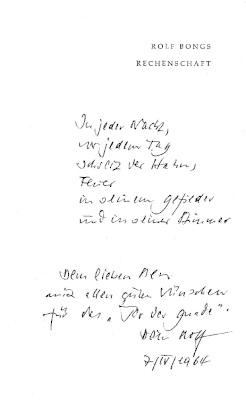 ROLF BONGS
RECHENSCHAFT
In jeder Nacht,
vor jedem Tag
schreit der Hahn,
Feuer
in deinem gefieder
und in deiner Stimme
Dem lieben
mit allen guten Wünschen
für das "Jahr der gnade".
Dein Rolf
7/IV/1964